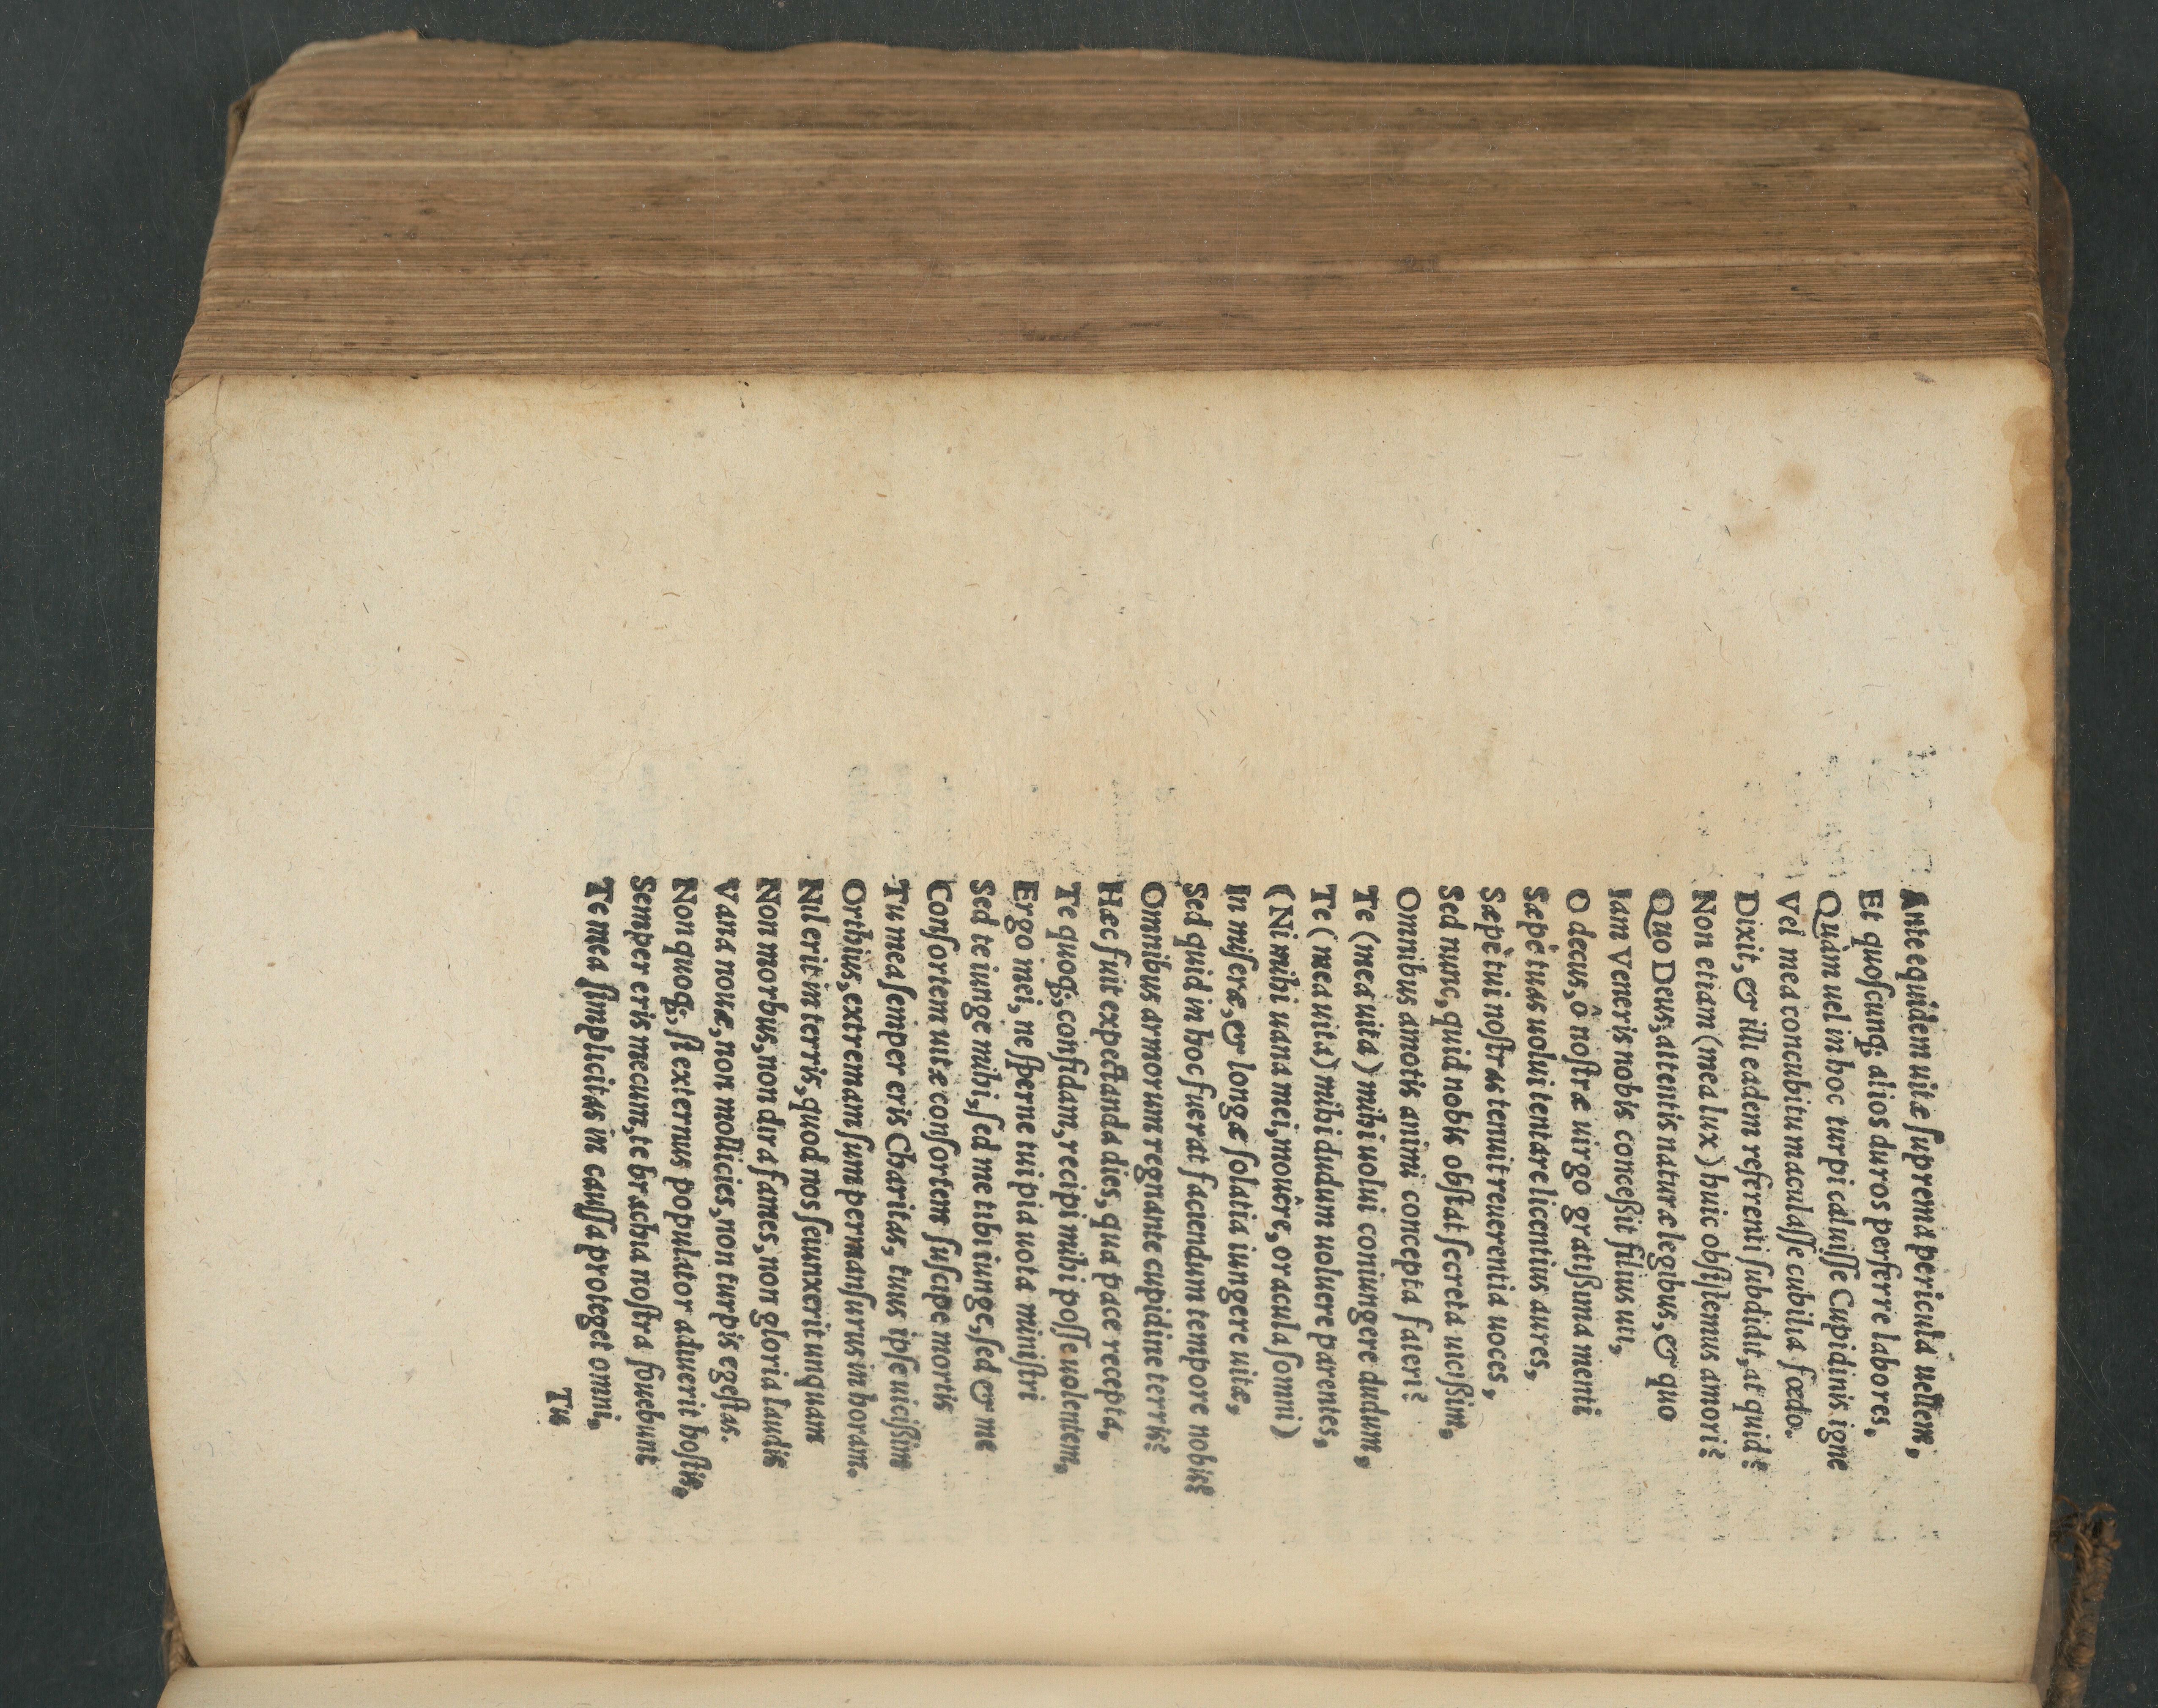 Ante equidem uitæ suprema pericula uellem,
Et quoscunq; alios duros perferre labores,
Quàm uel in hoc turpi caluisse Cupidinis igne
Vel mea concubitu maculasse cubilia fœdo.
Dixit, & illi eadem referenti subdidit, at quid?
Non etiam (mea lux) huic obsistemus amori?
Quo Deus, attentis naturæ legibus, & quo
Iam Veneris nobis conceßit filius uti,
O decus, ô nostræ uirgo gratißima menti
Sæpè tuas uolui tentare licentius aures,
Sæpè tui nostras tenuit reuerentia uoces,
Sed nunc, quid nobis obstat secreta uicißim,
Omnibus amotis animi concepta fateri?
Te (mea uita) mihi uolui coniungere dudum,
Te (mea uita) mihi dudum uoluere parentes,
(Ni mihi uana mei, mouêre, oracula somni)
In miseræ, & longæ solatia iungere uitæ,
Sed quid in hoc fuerat faciendum tempore nobis?
Omnibus armorum regnante cupidine terris?
Hæc fuit expectanda dies, qua pace recepta,
Te quoq; confidam, recipi mihi posse uolentem,
Ergo mei, ne sperne tui pia uota ministri
Sed te iunge mihi, sed me tibi iunge, sed & me
Consortem uitæ consortem suscipe mortis
Tu mea semper eris Charitas, tuus ipse uicißim
Orthius, extremam sum permansurus in horam.
Nil erit in terris, quod nos seiunxerit unquam
Non morbus, non dira fames, non gloria laudis
Vana nouæ, non mollicies, non turpis egestas.
Non quoq;, si externus populator aduerit hostis,
Semper eris mecum, te brachia nostra fouebunt
Te mea simplicitas in caussa proteget omni,
Tu